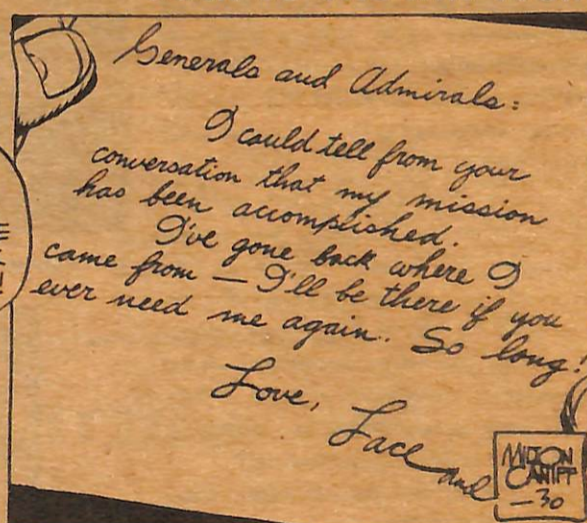 Generals and Admirals:
I could tell from your
conversation that my mission
has been accomplished.
I've gone back where I
came from — I'll be there if you
ever need me again. So long!
Love, Lace
and
MILTON
CANIFF
—30